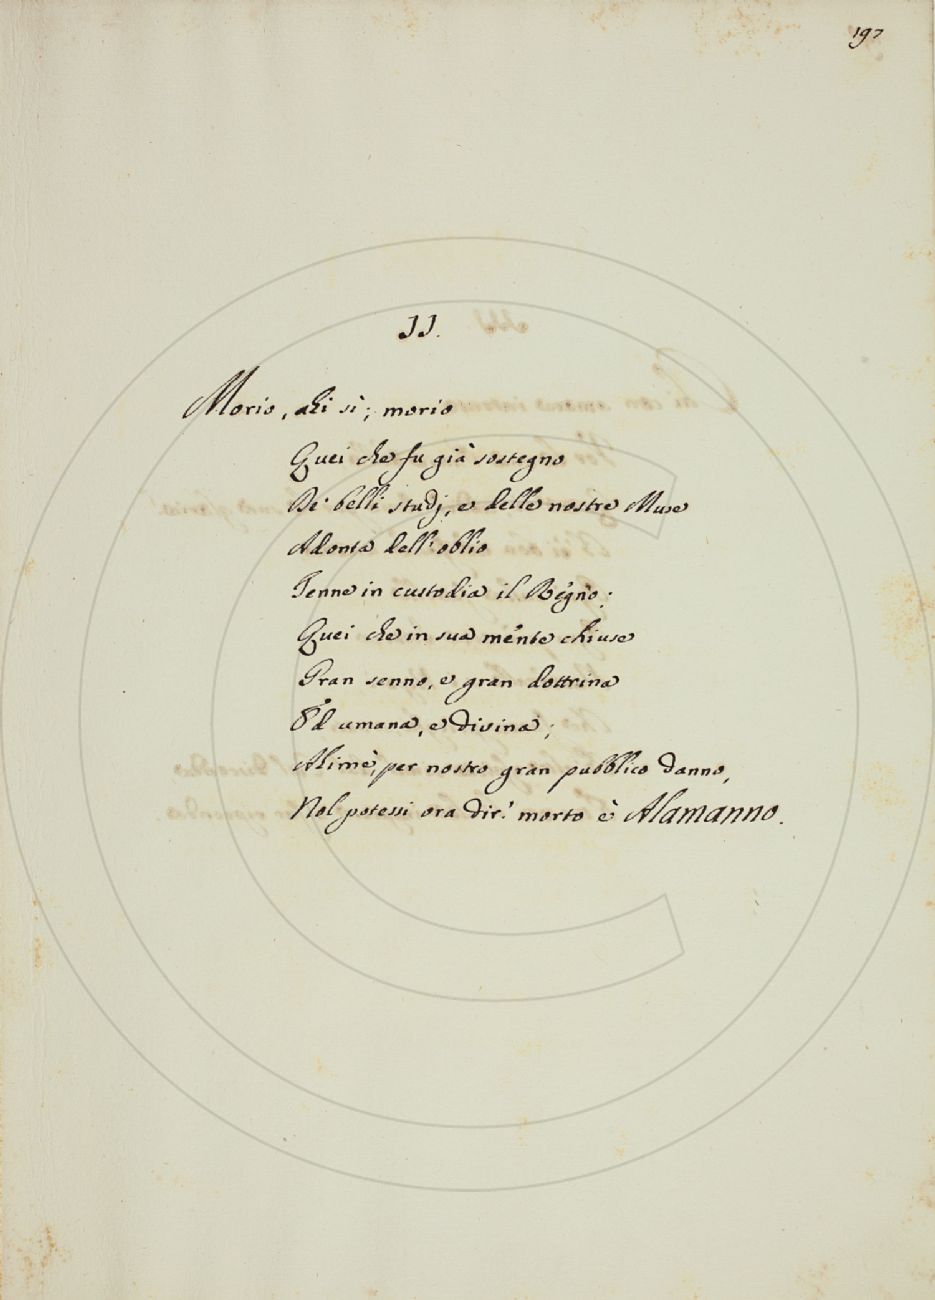 197
II.
Morio, ahi sì; morio
Quei che fu già sostegno
De' belli studj, e delle nostre Muse
Adonta dell'oblio
Tenne in custodia il Regno;
Quei che in sua mente chiuse
Gran senno, e gran dottrina
Ed umana, e divina;
Ahimè, per nostro gran pubblico danno,
Nol potessi ora dir! morto è Alamanno.